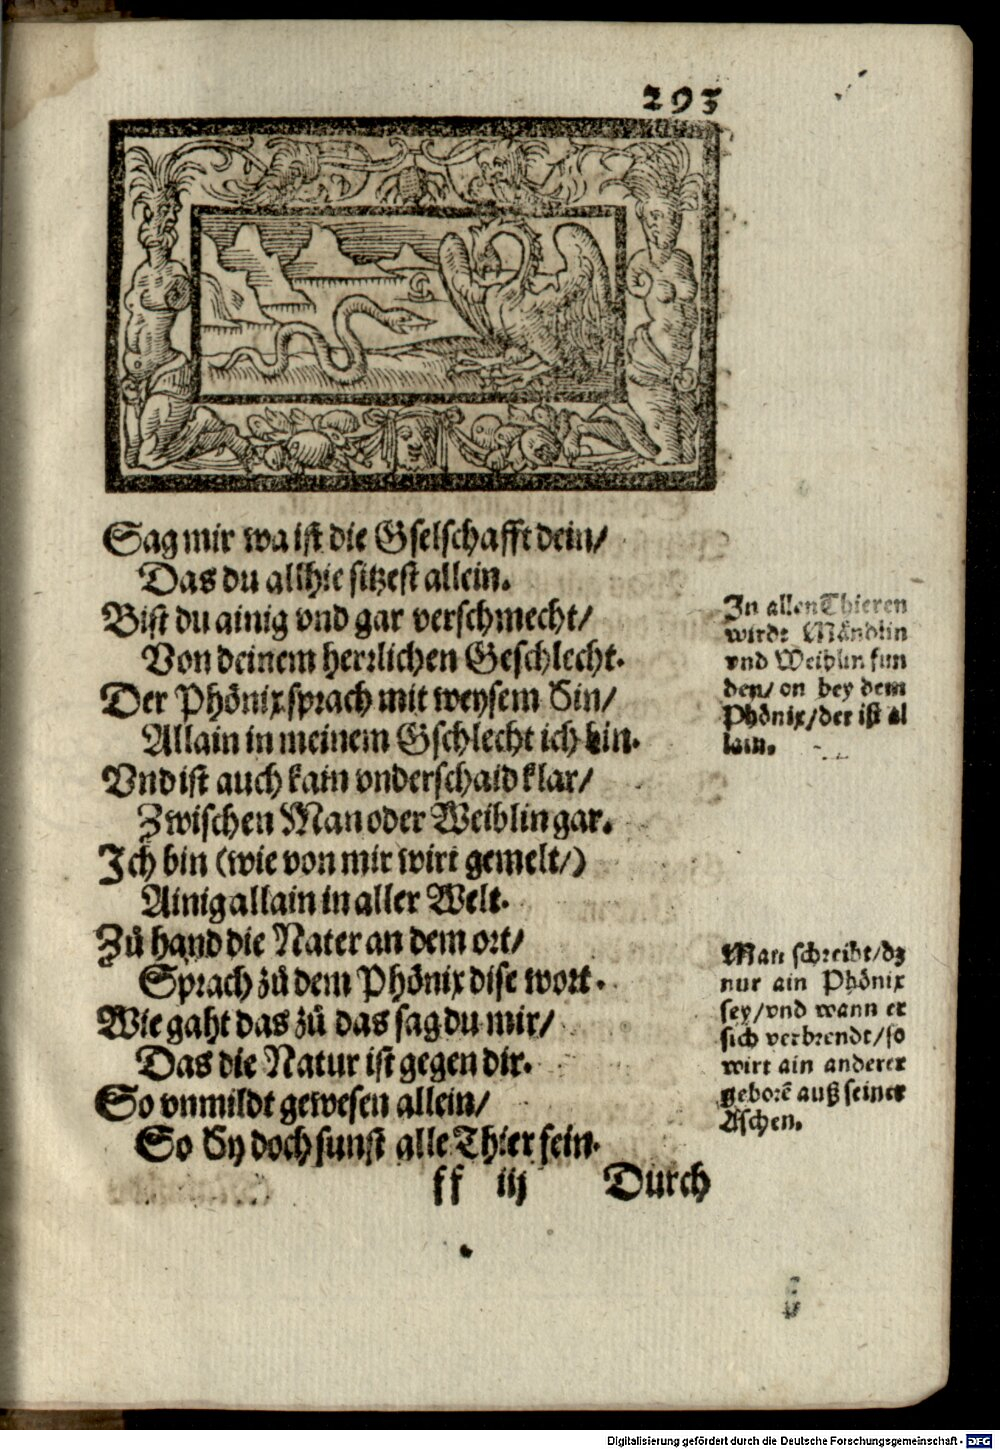 293
Sag mir wa ist die Gselschafft dein/
Das du allhie sitzest allein.
Bist du ainig vnd gar verschmecht/
Von deinem herrlichen Geschlecht.
Der Phönix sprach mit weysem Sin/
Allain in meinem Gschlecht ich bin.
Vnd ist auch kain vnderschaid klar/
Zwischen Man oder Weiblin gar.
Ich bin (wie von mir wirt gemelt/)
Ainig allain in aller Welt.
Zů hand die Nater an dem ort/
Sprach zů dem Phönix dise wort.
Wie gaht das zů das sag du mir/
Das die Natur ist gegen dir.
So vnmildt gewesen allein/
So Sy doch sunst alle Thier fein.
ff iij Durch
In allen Thieren
wirdt Mändlin
vnd Weiblin fun
den/ on bey dem
Phönix/ der ist al
lain.
Man schreibt/ dz
nur ain Phönix
sey/ vnd wann er
sich verbrendt/ so
wirt ain anderer
geborẽ auß seiner
Aschen.
Digitalisierung gefördert durch die Deutsche Forschungsgemeinschaft - DFG